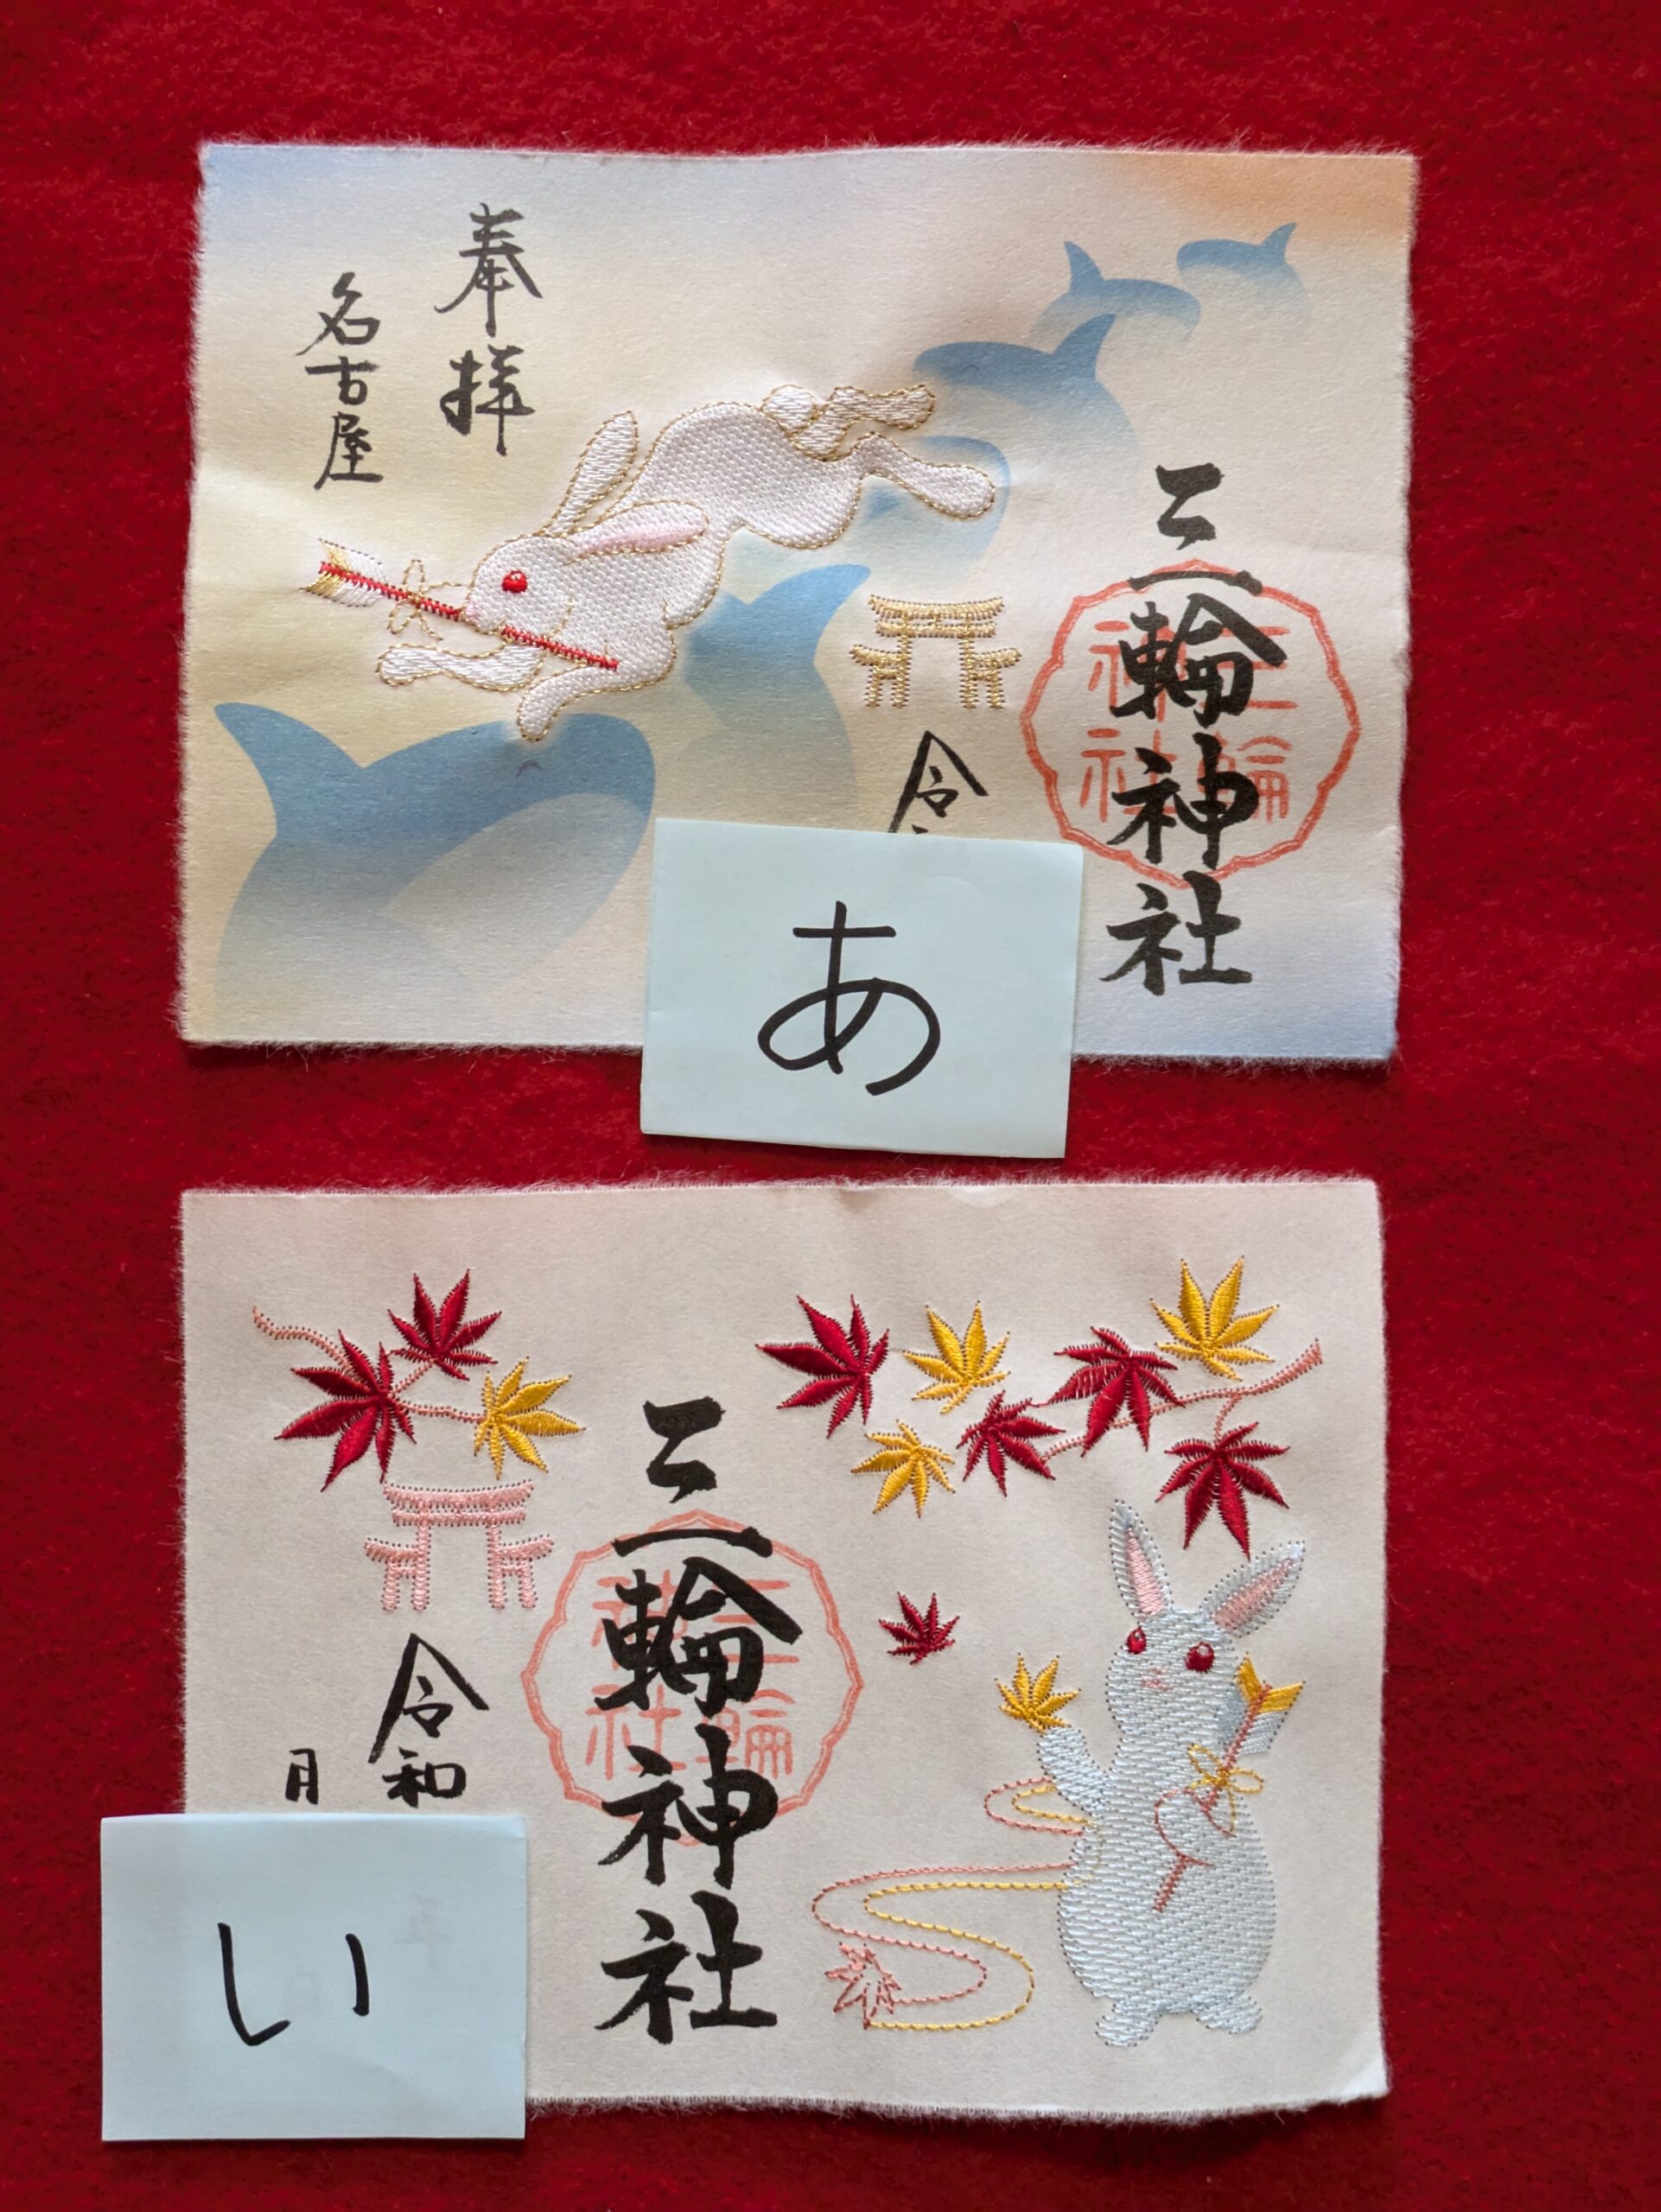 奉拝
名古屋
三輪神社
三輪神社
令
あ
三輪神社
三輪神社
令和
月
い